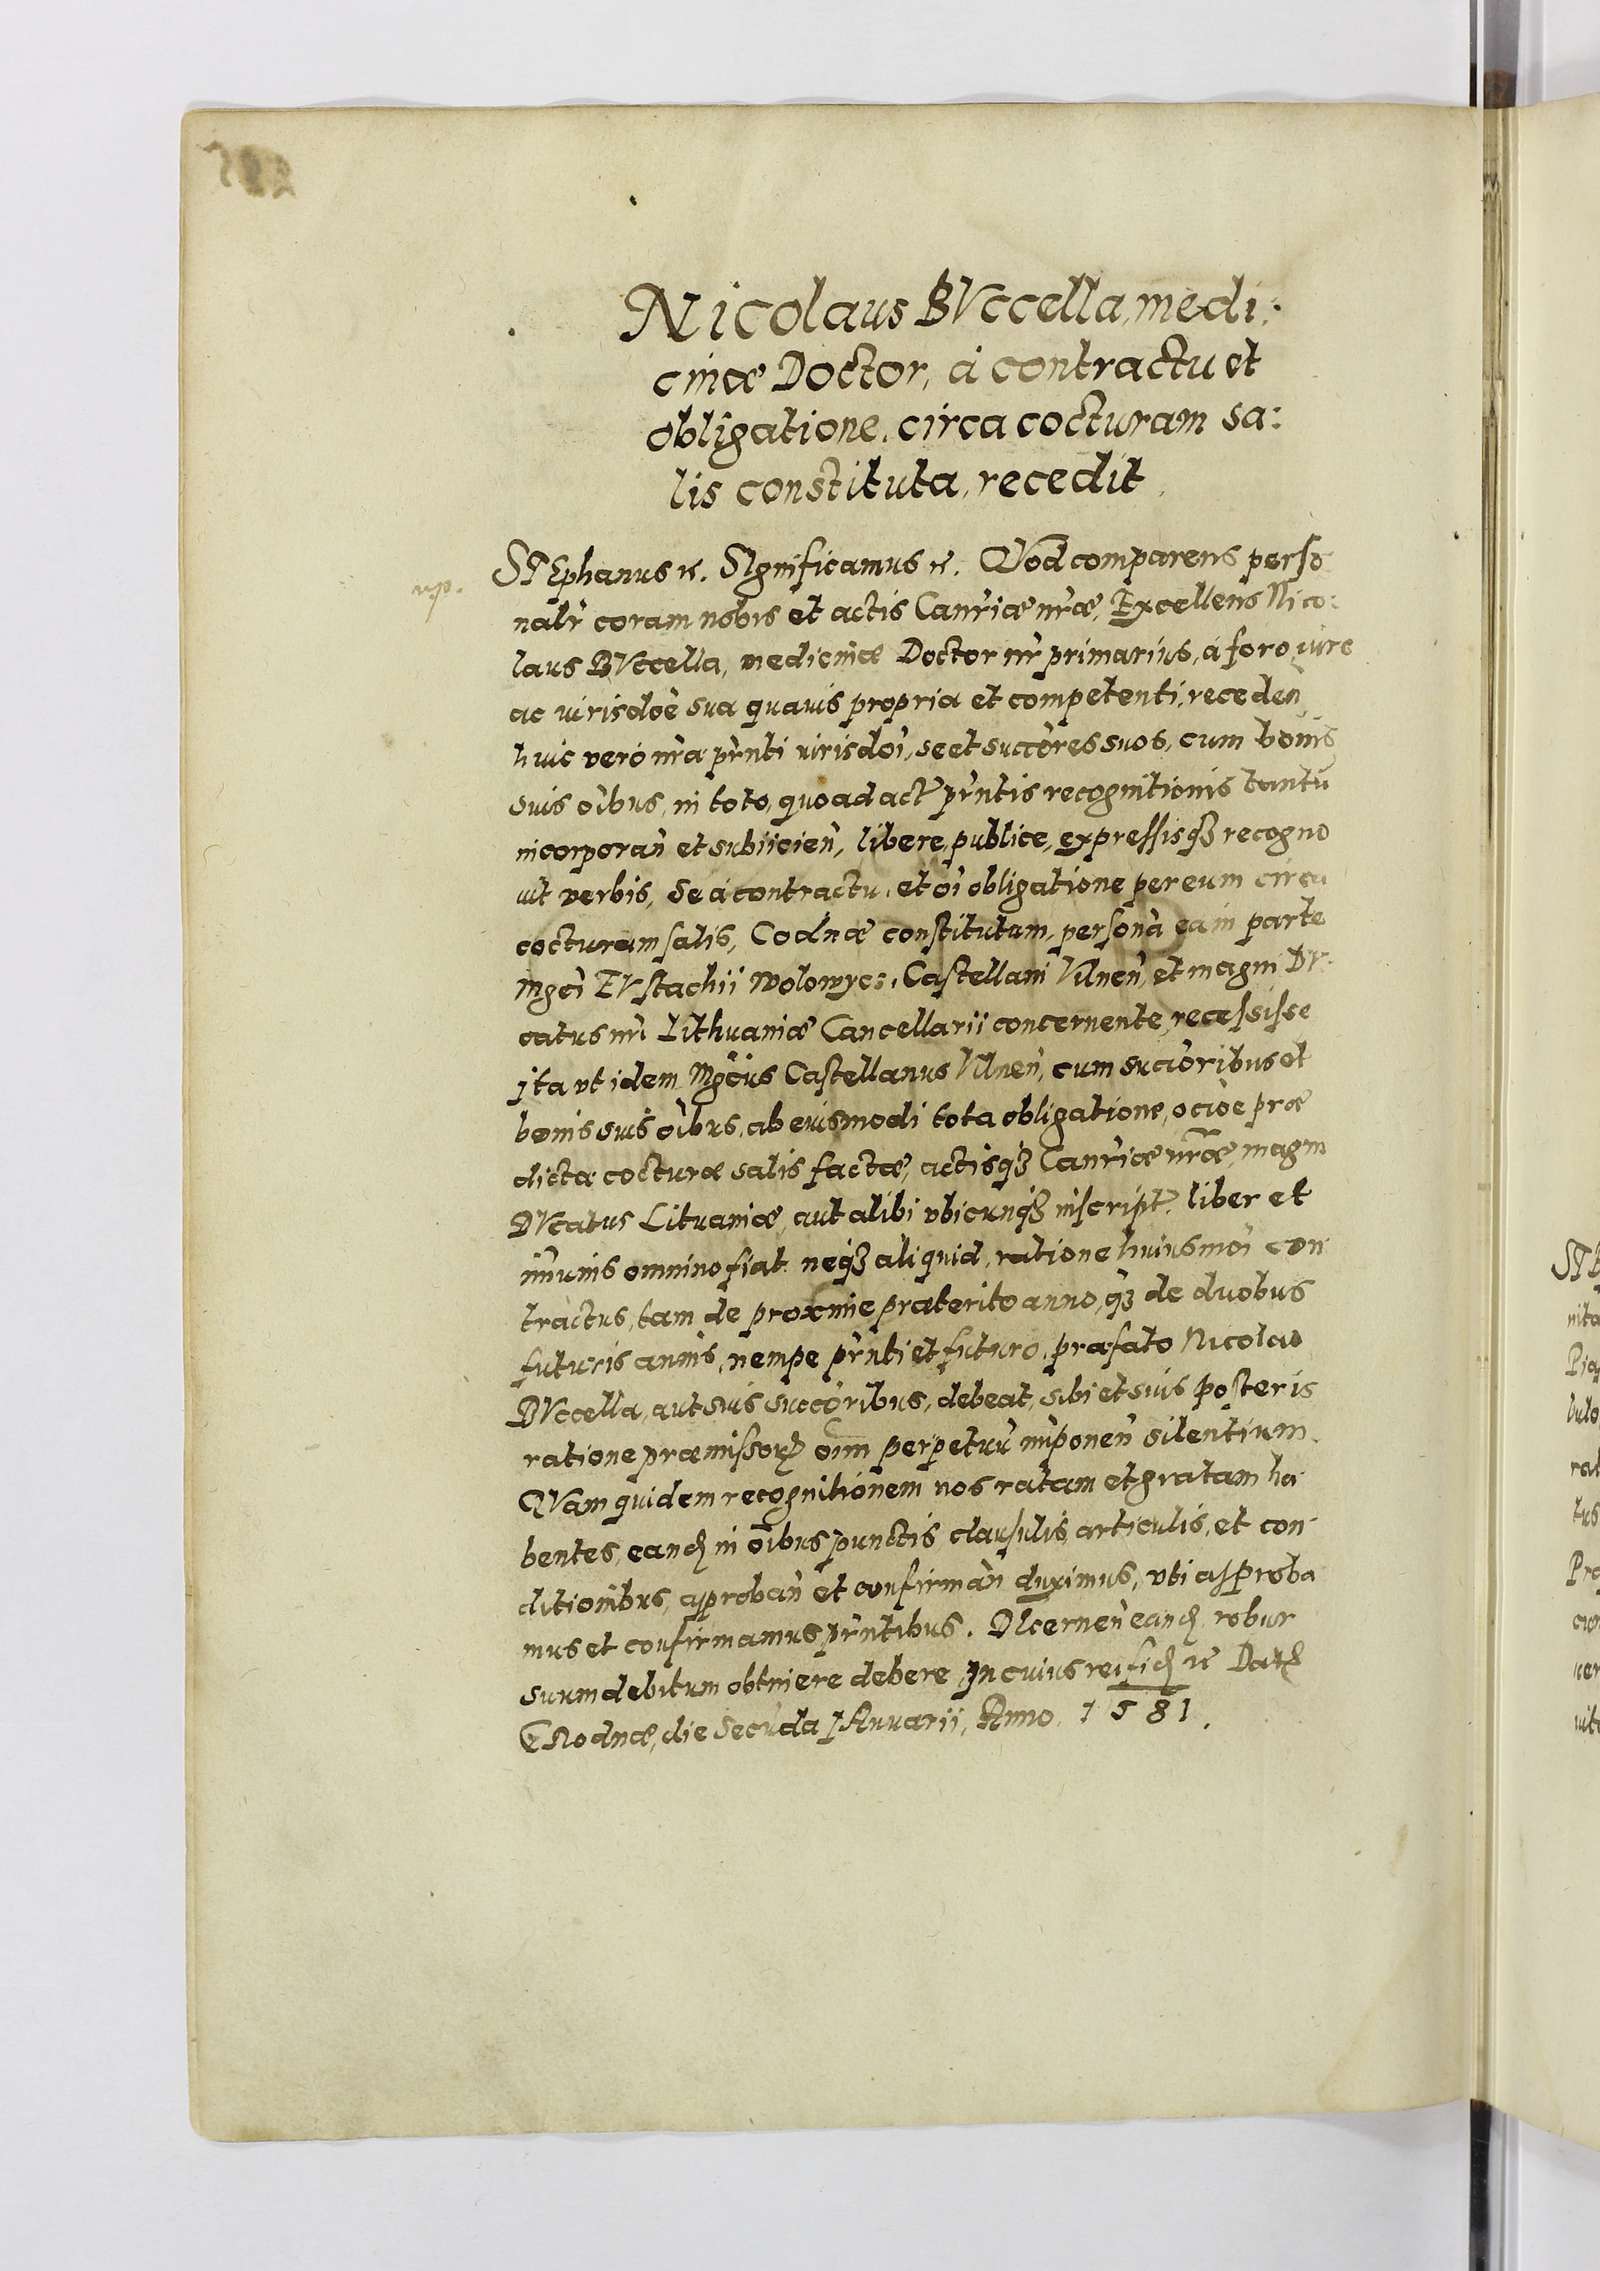 Nicolaus BVccella, medi:
cinæ Doctor, à contractu et
obligatione, circa cocturam sa:
lis constituta, recedit
STEphanus etc. SIgnificamus etc. QVod comparens perso
nalr coram nobis et actis Canriæ nræ, Excellens Nico:
laus BVccella, medicinæ Doctor nr primarius, à foro iure
ac iurisdoe sua quauis propria et competenti, receden
huic vero nra pnti iurisdoi, se et succores suos, cum bonis
suis oibus, in toto, quo ad act pntis recognitionis tantu
incorporan et subiicien, libere, publice, expressisq3 recogno
uit verbis, Se à contractu, et oi obligatione per eum circa
cocturam salis, Codnæ constitutum, persona ea in parte
Mgci EVstachii Wolowycz, Castellani Vilnen, et magni DV:
catus nri Lithuaniæ Cancellarii concernente, recessisse
Jta vt idem Mgcus Castellanus Vilnen, cum succoribus et
bonis suis oibus, ab eiusmodi tota obligatione, ocioe præ
dictæ cocturæ salis factæ, actisq3 Canriæ nræ, magni
DVcatus Lituaniæ, aut alibi vbicunq3 inscript. liber et
imunis omnino fiat neq3 aliquid, ratione huiusmoi con
tractus, tam de proxime præterito anno, q3 de duobus
futuris annis, nempe pnti et futuro, præfato Nicolao
BVccella, aut suis succoribus, debeat, sibi et suis posteris
ratione præmissor oim perpetuu imponen silentium.
QVam quidem recognitionem nos ratam et gratam ha
bentes, eand in oibus punctis, clausulis, articulis, et con
ditionibus, approban et confirman duximus, vti approba
mus et confirmamus pntibus. DEcernen eand robur
suum debitum obtinere debere Jn cuius rei fid etc Dat
GRodnæ, die Secuda JAnuarii, Anno, 1581.